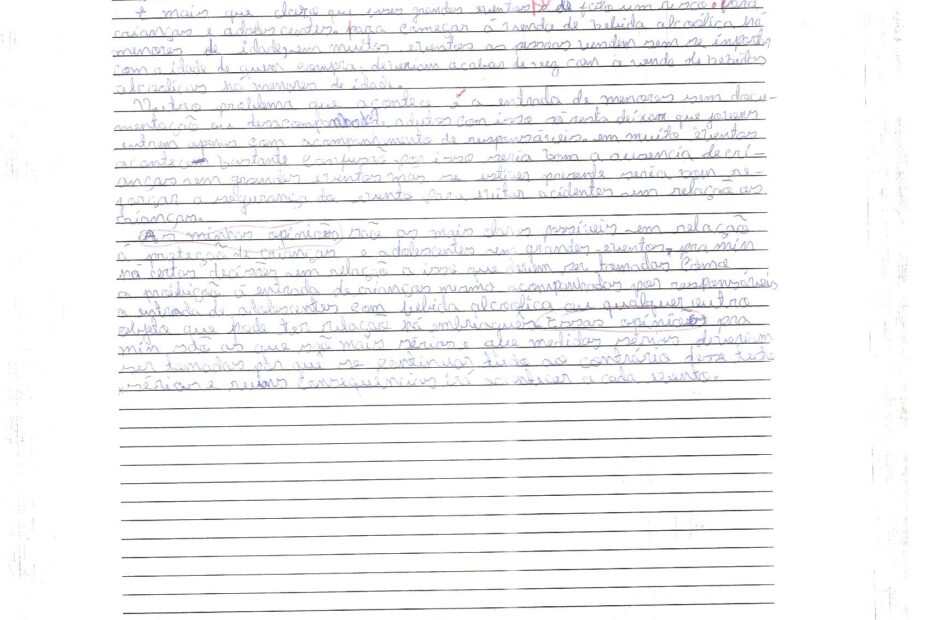 É mais que claro que esses grandes eventos de fato um risco para
crianças e adolescentes para começar á venda de bebida alcoólica há
menores de idade, em muitos eventos as pessoas vendem sem se importa
com a idade de quem compra. deveriam acabar de vez com a venda de bebidas
alcoolicas há menores de idade.
Outro problema que acontece é a entrada de menores sem docu-
mentação ou adultos com isso só resta deixar que jovens
entrem apenas com acompanhamento de responsáveis. em muito eventos
acontece bastante confusão por isso seria bom a ausencia de cri-
anças em grandes eventos mas se estiver presente seria bom re-
forçar a segurança do evento para evitar acidentes em relação as
crianças.
As minhas opiniões são as mais claras possíveis em relação
á proteção de crianças e adolescentes em grandes eventos, pra min
há certas decisões em relação a isso que devem ser tomadas como
a proibição á entrada de crianças mesmo acompanhadas por responsáveis
a entrada de adolescentes com bebida alcoolica ou qualquer outro
objeto que pode ter relação há Essas opiniões pra
min são as que são mais sérias e que medidas sérias deveriam
ser tomadas por que se continuar tudo ao contrário desse texto
sérias e ruins consequências irá acontecer a cada evento.